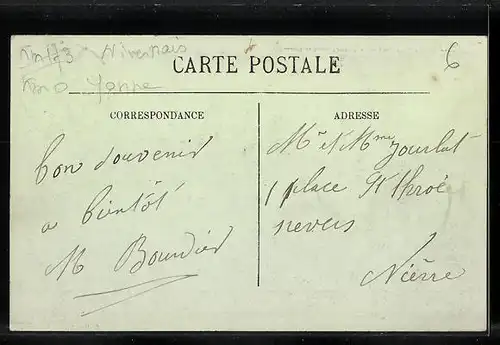 Nivernais
Yonne
6
CARTE POSTALE
CORRESPONDANCE
ADRESSE
bon souvenir
a bientôt
M Bourdier
Mr et Mme Jourlat
1 place St
nevers
Nièvre